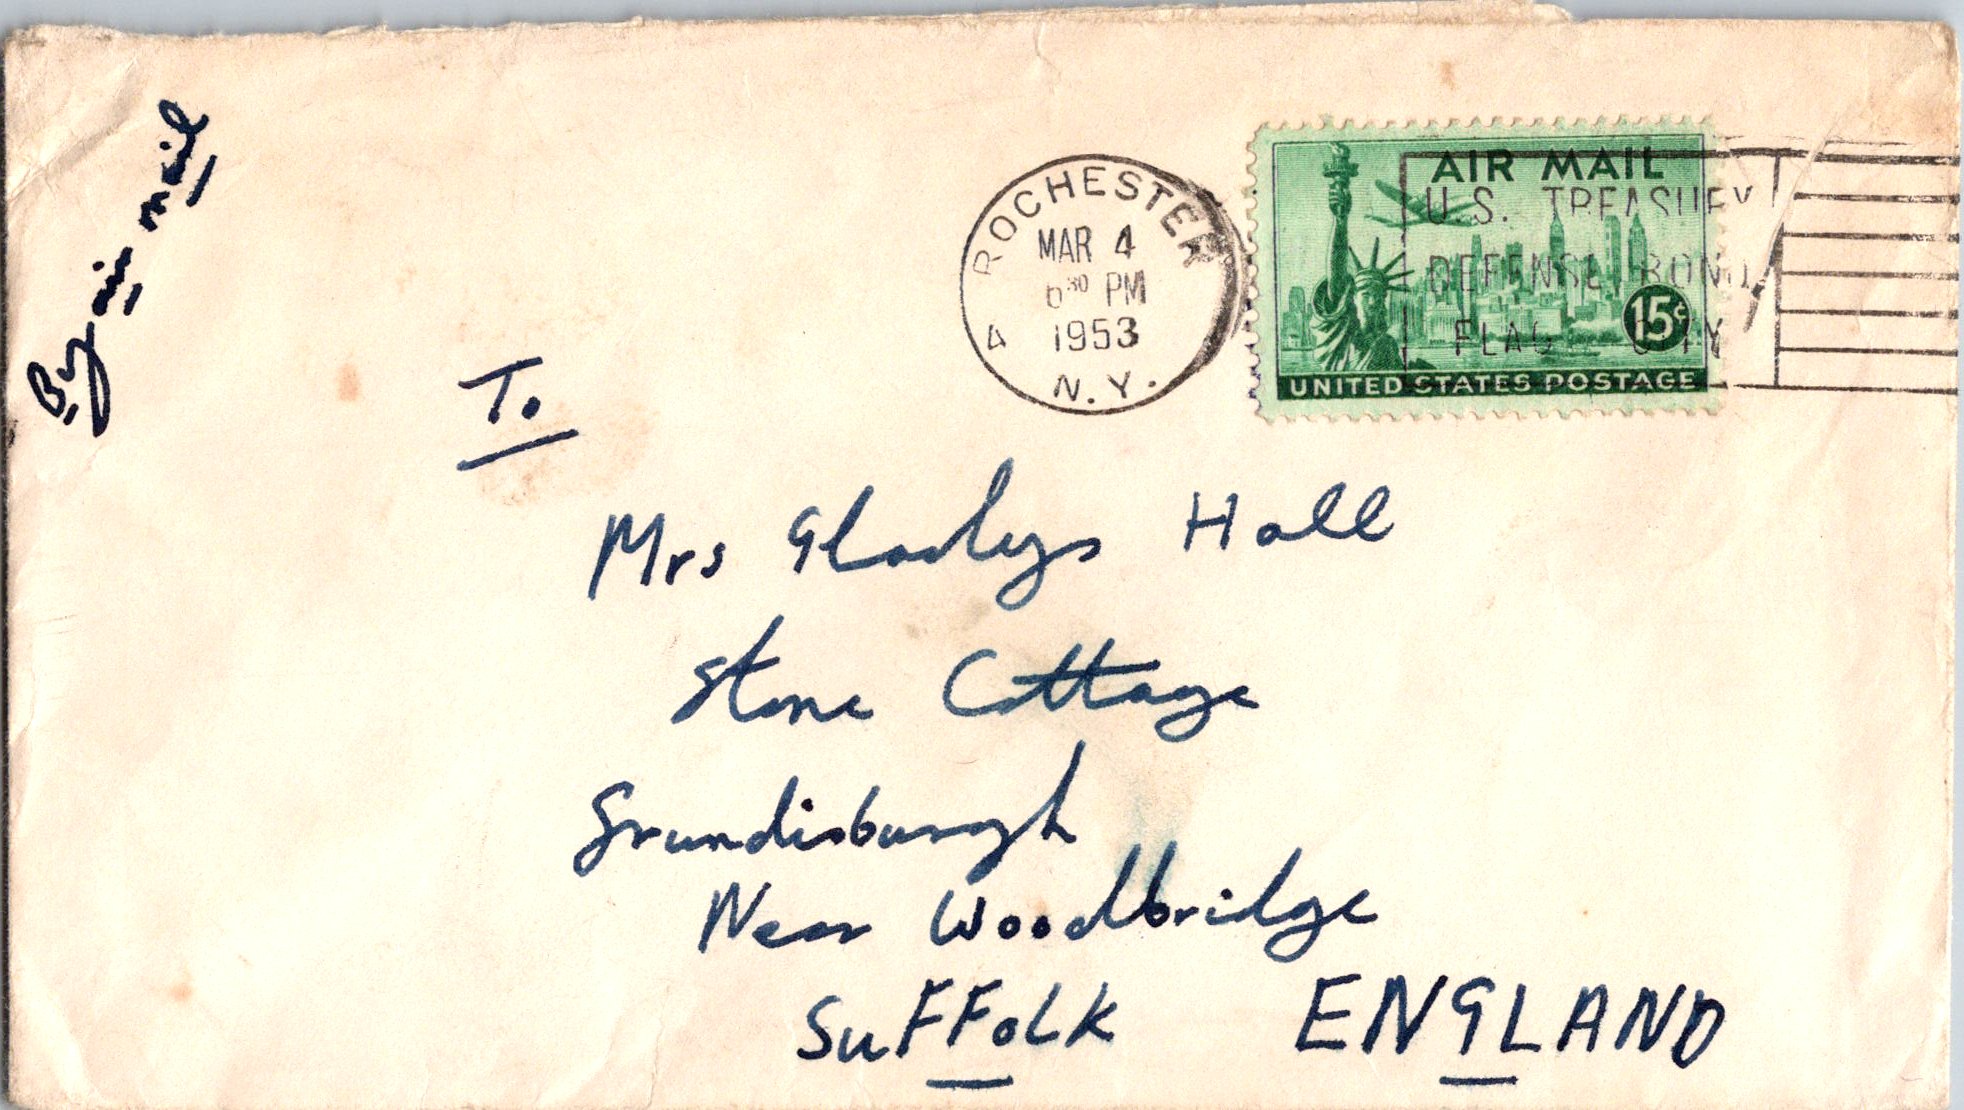 By air mail
ROCHESTER
MAR 4
6 30 PM
1953
4
N.Y.
AIR MAIL
U.S. TREASURY
DEFENSE BOND
FLAG CITY
15¢
UNITED STATES POSTAGE
To
Mrs Gladys Hall
Stone Cottage
Grundisburgh
Near Woodbridge
SuFFolk ENGLAND